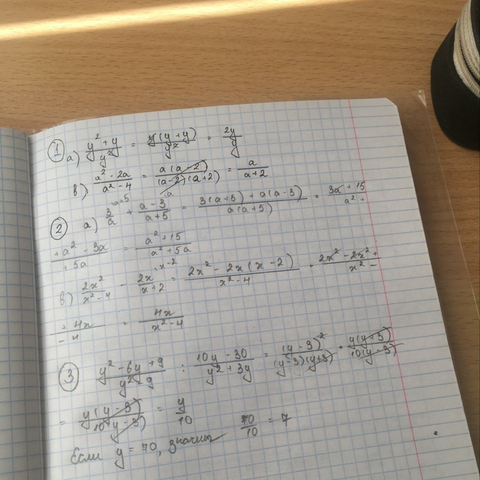 1 а) (y² + y)/y² = y(y + y)/y² = 2y/y
в) (a² - 2a)/(a² - 4) = a(a - 2)/((a - 2)(a + 2)) = a/(a + 2)
2 а) 3/a + (a - 3)/(a + 5) = (3(a + 5) + a(a - 3))/(a(a + 5)) = (3a + 15
+ a² - 3a)/(+ 5a) = (a² + 15)/(a² + 5a)
в) 2x²/(x² - 4) - 2x/(x + 2) = (2x² - 2x(x - 2))/(x² - 4) = (2x² - 2x² +
+ 4x)/(- 4) = 4x/(x² - 4)
3 (y² - 6y + 9)/(y² - 9) : (10y - 30)/(y² + 3y) = (y - 3)²/((y - 3)(y + 3)) · y(y + 3)/(10(y - 3))
= y(y - 3)/(10(y - 3)) = y/10
Если y = 70, значит 70/10 = 7